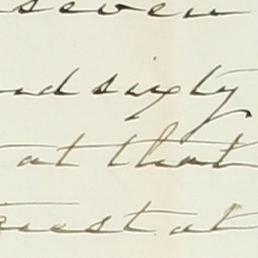 seven
nd sixty
at that
quest at